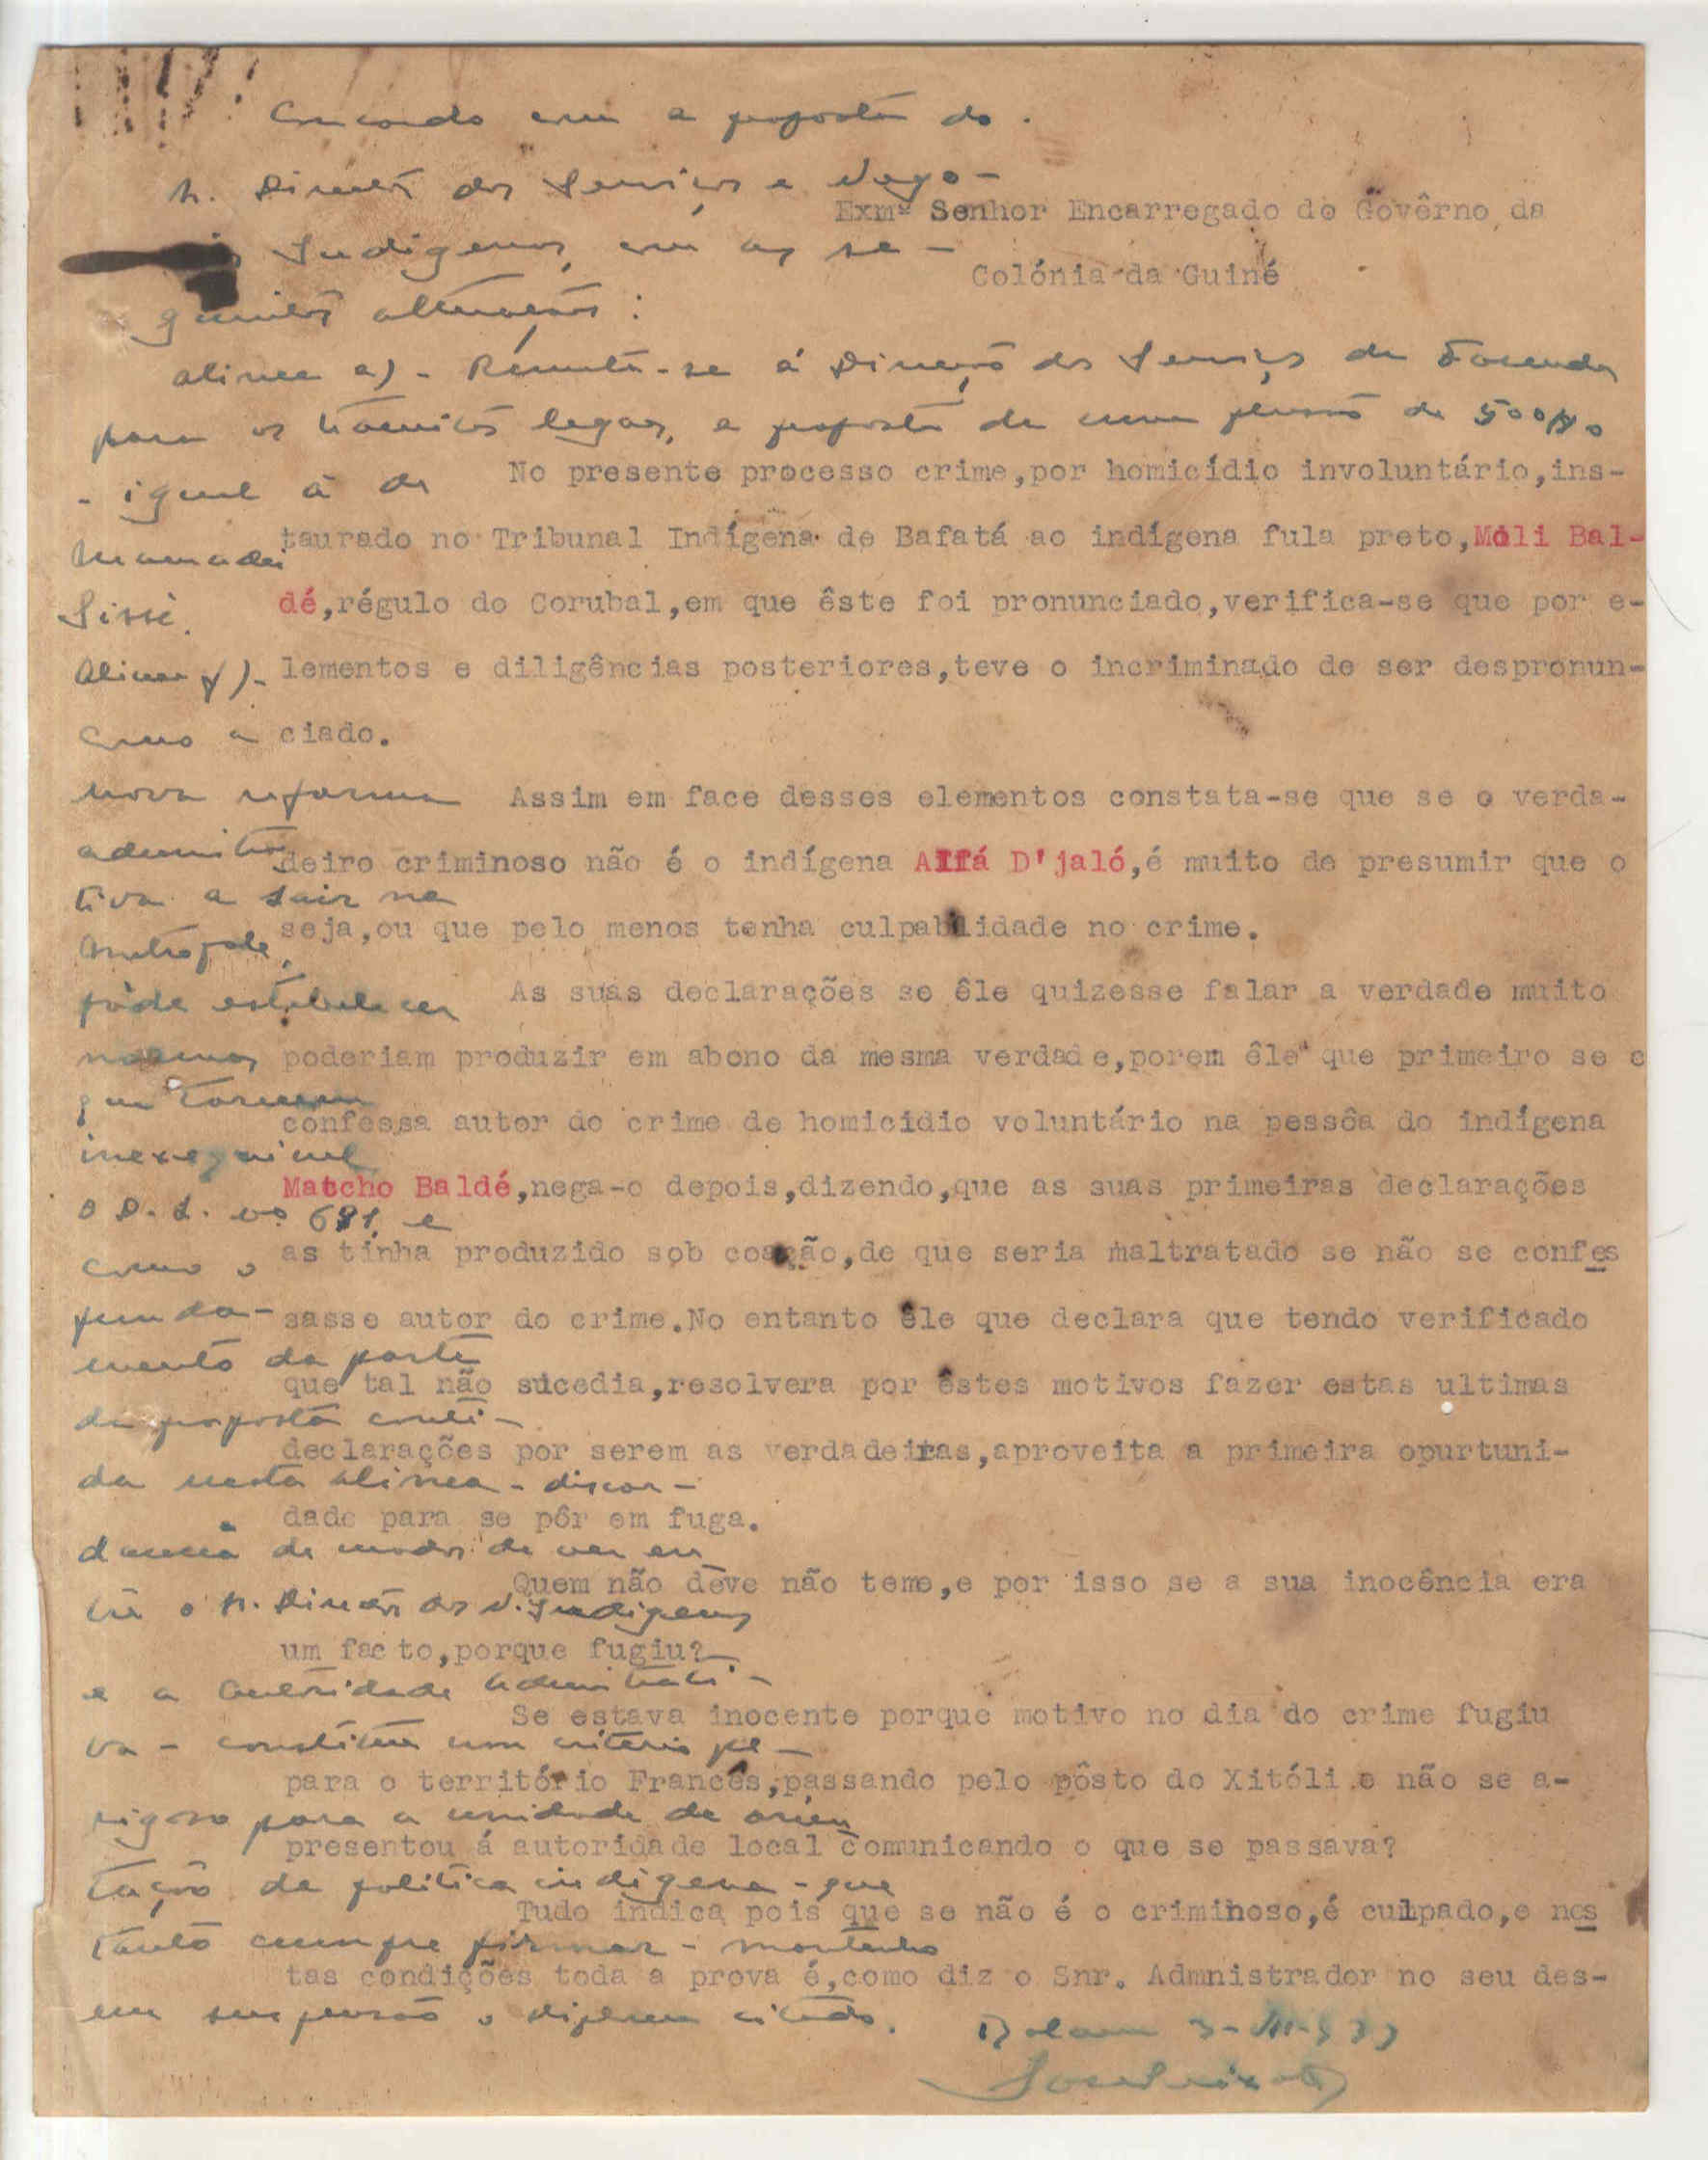 Concordo com a proposta do
Sr. Director dos Serviços e Negó-
Exmº Senhor Encarregado do Govêrno da
Indigenas, com as se-
Colónia da Guiné
guintes alterações:
alinea a) - Remeta-se á Direcção dos Serviços de Fazenda
para os tramites legaes, a proposta de uma pensão de 500$00
- igual á de
Mamadú
Sissé.
Alinea f) -
Como a
nova reforma
tiva a sair na
Metropole,
póde estabelecer
normas
que tornem
inexequivel
o D.L. nº e
como o
funda-
mento da parte
da proposta conti-
da nesta alinea - discor-
dancia de modos de ver en
tre o Sr. Director dos N. Indigenas
e a autoridade administrati-
va - constitue um criterio pe-
rigoso para a unidade de orien
tação da politica indigena - que
tanto cumpre firmar - mantenho
em suspensão o diploma citado.
Bolama
No presente processo crime,por homicídio involuntário,ins-
taurado no Tribunal Indígena de Bafatá ao indígena fula preto,Moli Bal-
dé,régulo do Corubal,em que êste foi pronunciado,verifica-se que por e-
lementos e diligências posteriores,teve o incriminado de ser despronun-
ciado.
Assim em face desses elementos constata-se que se o verda-
deiro criminoso não é o indígena Alfá D'jaló,é muito de presumir que o
seja,ou que pelo menos tenha culpabilidade no crime.
As suas declarações se êle quizesse falar a verdade muito
poderiam produzir em abono da mesma verdade,porem êle que primeiro se c
confessa autor do crime de homicidio voluntário na pessôa do indígena
Matcho Baldé,nega-o depois,dizendo,que as suas primeiras declarações
as tinha produzido sob coação,de que seria maltratado se não se confes
sasse autor do crime.No entanto êle que declara que tendo verificado
que tal não sucedia,resolvera por êstes motivos fazer estas ultimas
declarações por serem as verdadeiras,aproveita a primeira opurtuni-
dade para se pôr em fuga.
Quem não deve não teme,e por isso se a sua inocência era
um facto,porque fugiu?
Se estava inocente porque motivo no dia do crime fugiu
para o território Francês,passando pelo pôsto do Xitóli e não se a-
presentou á autoridade local comunicando o que se passava?
Tudo indica pois que se não é o criminoso,é culpado,e nes
tas condições toda a prova é,como diz o Snr. Admnistrador no seu des-